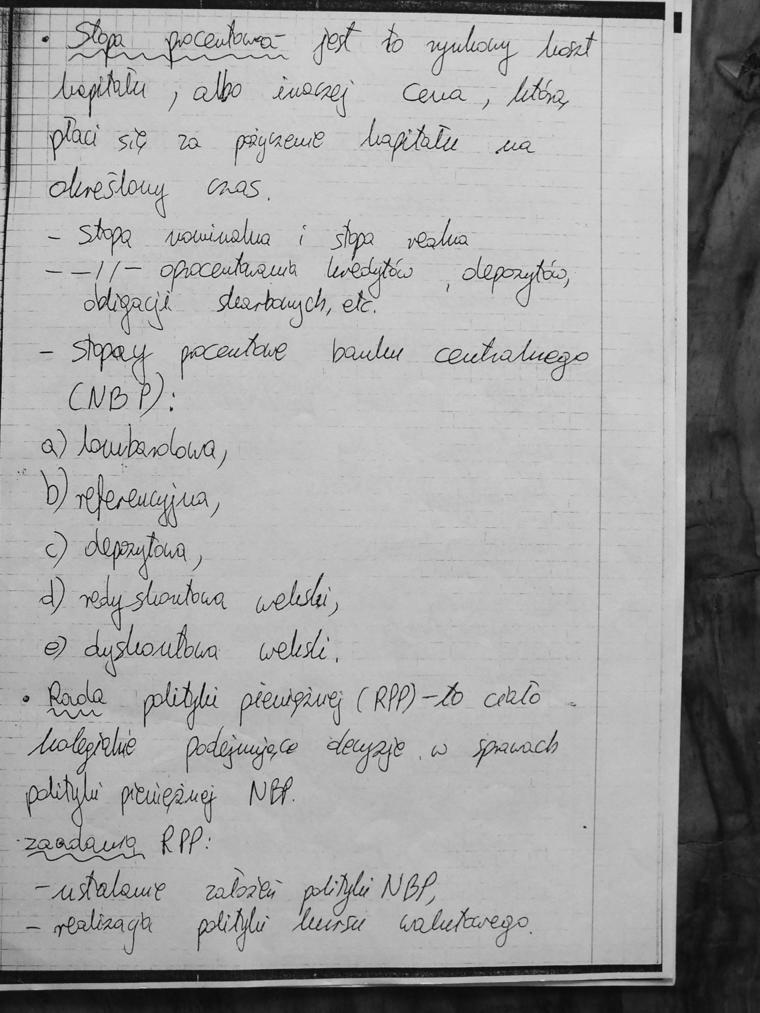 • Stopa procentowa - jest to rynkowy koszt
kapitału, albo inaczej cena, którą
płaci się za pożyczenie kapitału na
określony czas.
- Stopa nominalna i stopa realna
- -//- oprocentowania kredytów, depozytów,
obligacji skarbowych, etc.
- Stopay procentowe banku centralnego
(NBP):
a) lombardowa,
b) referencyjna,
c) depozytowa,
d) redyskontowa weksli,
e) dyskontowa weksli.
• Rada polityki pieniężnej (RPP) - to ciało
kolegialne podejmujące decyzje w sprawach
polityki pieniężnej NBP.
zadania RPP:
- ustalanie założeń polityki NBP,
- realizacja polityki kursu walutowego.